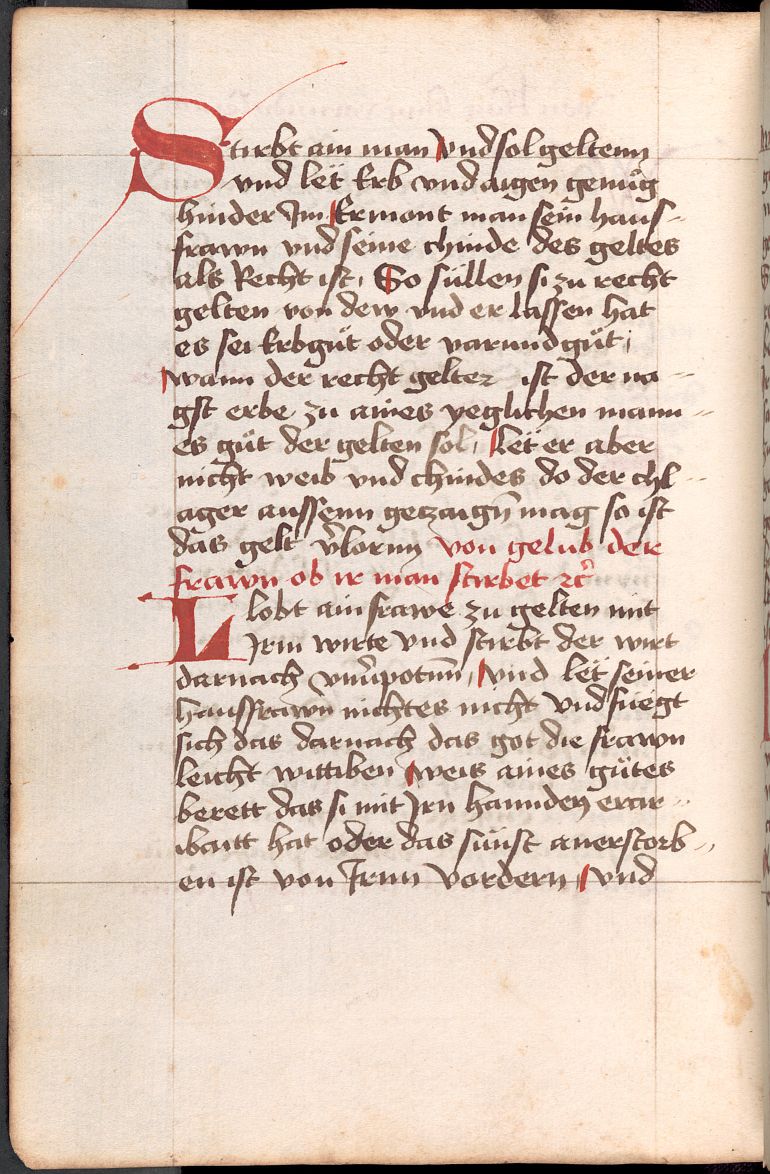 Stirbt ain man vnd sol geltenn
vnd let Erb vnd aigen genüg
hinder Im Ermont man sein haus=
frawn vnd seine chinde des geltes
als Recht ist, So süllen si zu recht
gelten von dew vnd er lassen hat
es sei Erbgüt oder varundgüt,
wann der recht gelter ist der na=
gst erbe zu aines yeglichen mann=
es güt der gelten sol, let er aber
nicht weib vnd chindes do der chl=
ager aussenn getzaign mag so ist
das gelt v̄lornn von gelüb der
frawn ob ir man stirbet ⁊c̄
Llobt ain frawe zu gelten mit
Jrm wirte vnd stirbt der wirt
darnach vnu̅potn̄, vnd let seiner
hausfrawn̄ nichtes nicht vnd füegt
sich das darnach das got die frawn
leicht wittiben weis aines gütes
berett das si mit Jrn hannden erar=
ibatt hat oder das sünst anerstorb=
en ist von Irnn vordern, vnd